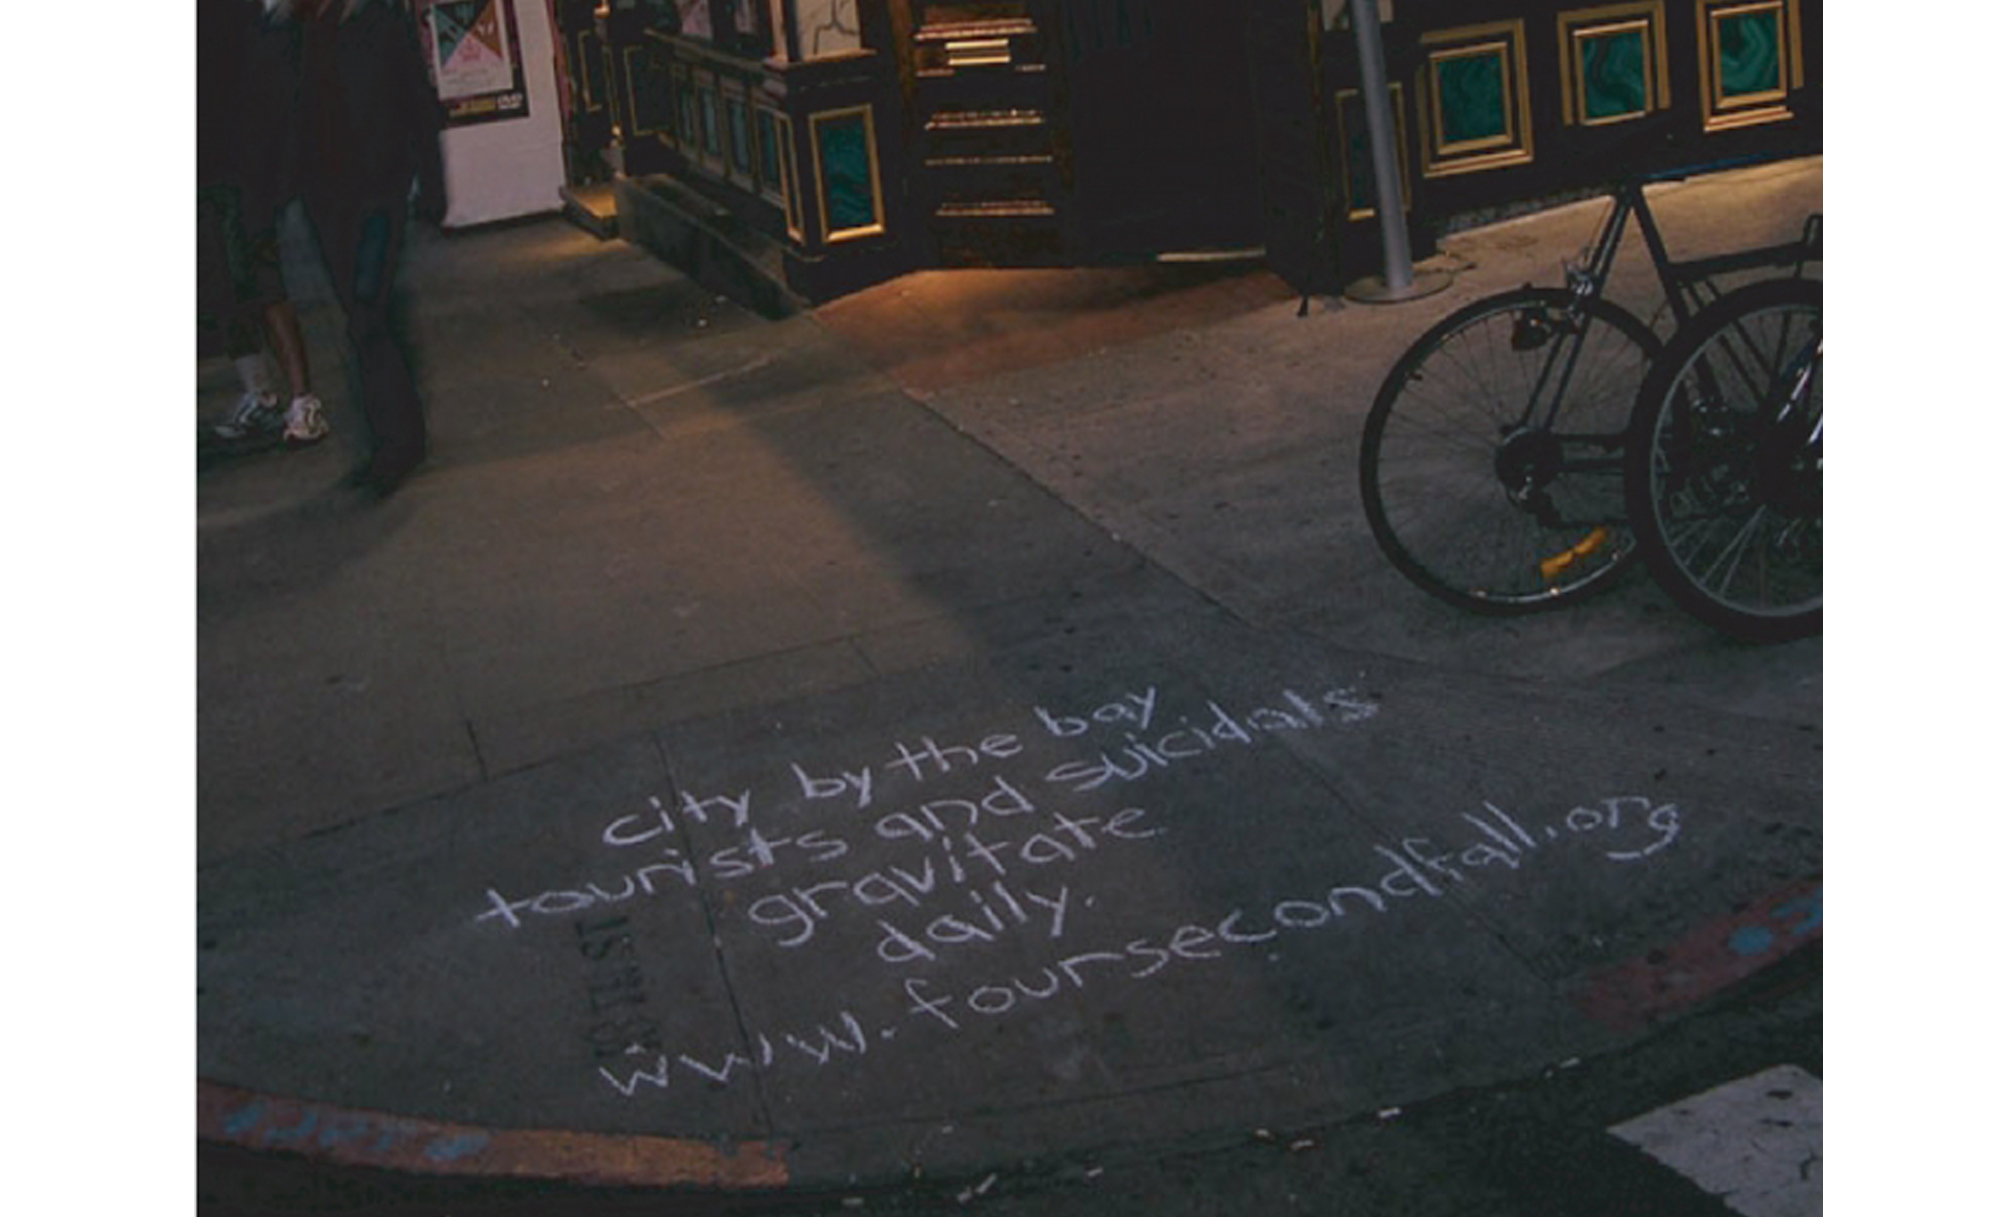 city by the bay
tourists and suicidals
gravitate
daily.
www.foursecondfall.org